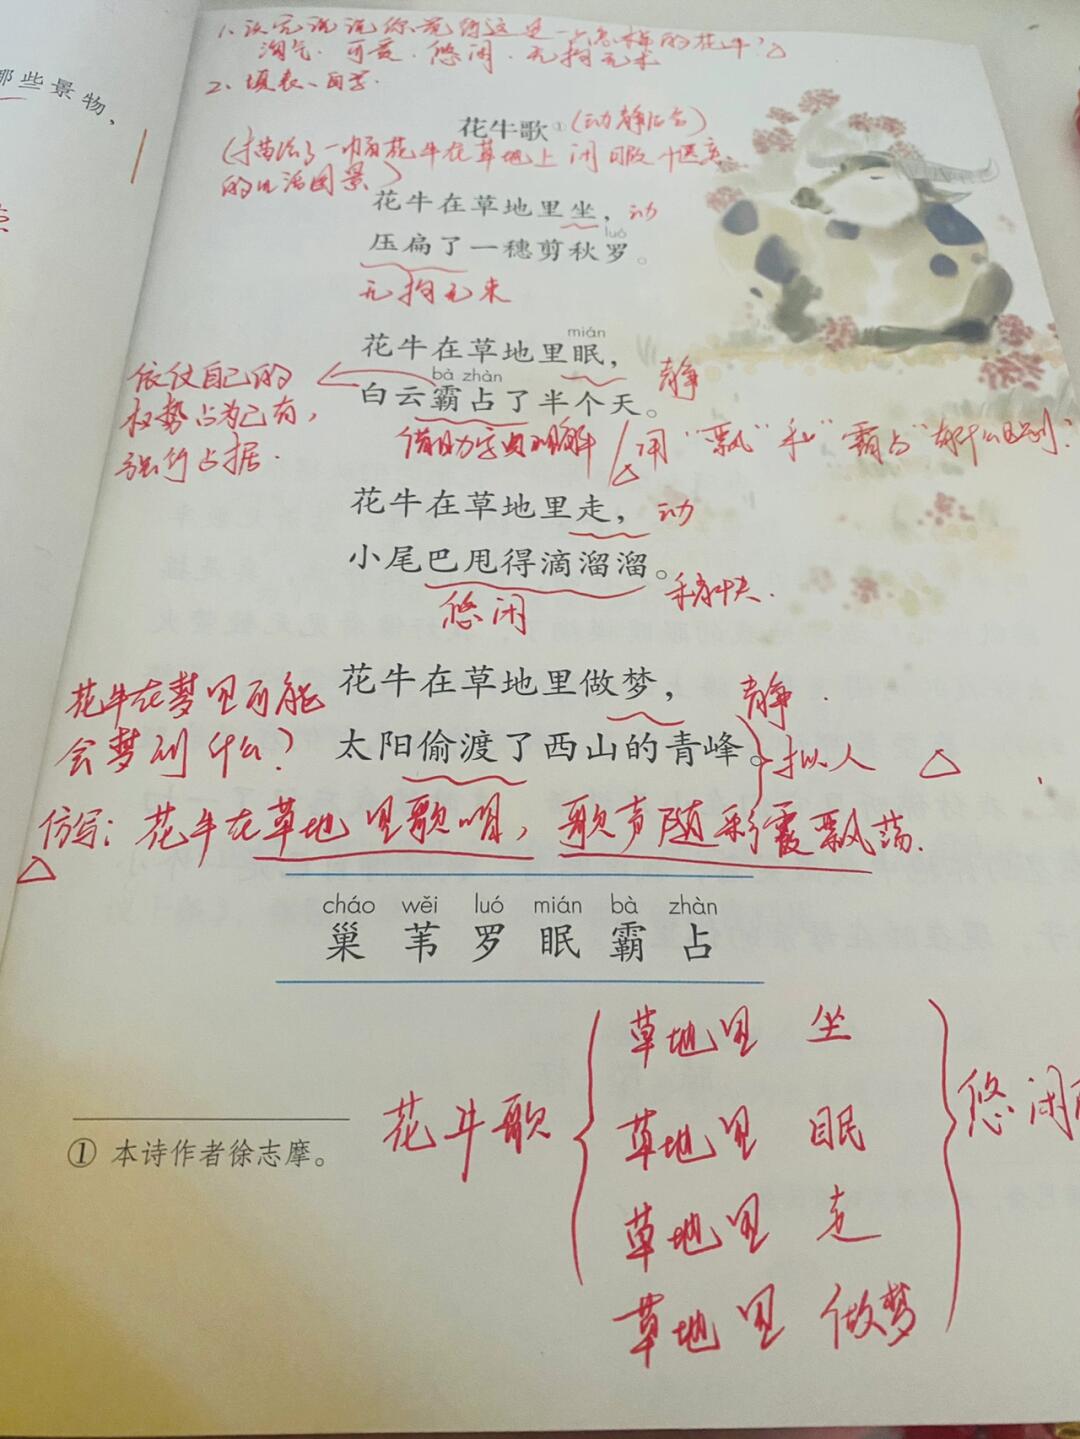 那些景物，
1、读完说说你觉得这是一只怎样的花牛？△
淘气、可爱、悠闲、无拘无束
2、填表、自学.
花牛歌① (动静结合)
(描绘了一幅花牛在草地上闲暇惬意
的生活图景)
花牛在草地里坐， 动
luó
压扁了一穗剪秋罗。
无拘无束
mián
花牛在草地里眠， 静
bà zhàn
白云霸占了半个天。
依仗自己的
权势占为己有，
强行占据.
借助字典理解
△用“飘”和“霸占”有什么区别？
花牛在草地里走， 动
小尾巴甩得滴溜溜。
悠闲
花牛在草地里做梦， 静.
太阳偷渡了西山的青峰。 拟人 △
花牛在梦里可能
会梦到什么？
仿写：花牛在草地里歌唱，歌声随彩霞飘荡.
△
cháo wěi luó mián bà zhàn
巢 苇 罗 眠 霸 占
花牛歌
草地里 坐
草地里 眠
草地里 走
草地里 做梦
悠闲
① 本诗作者徐志摩。